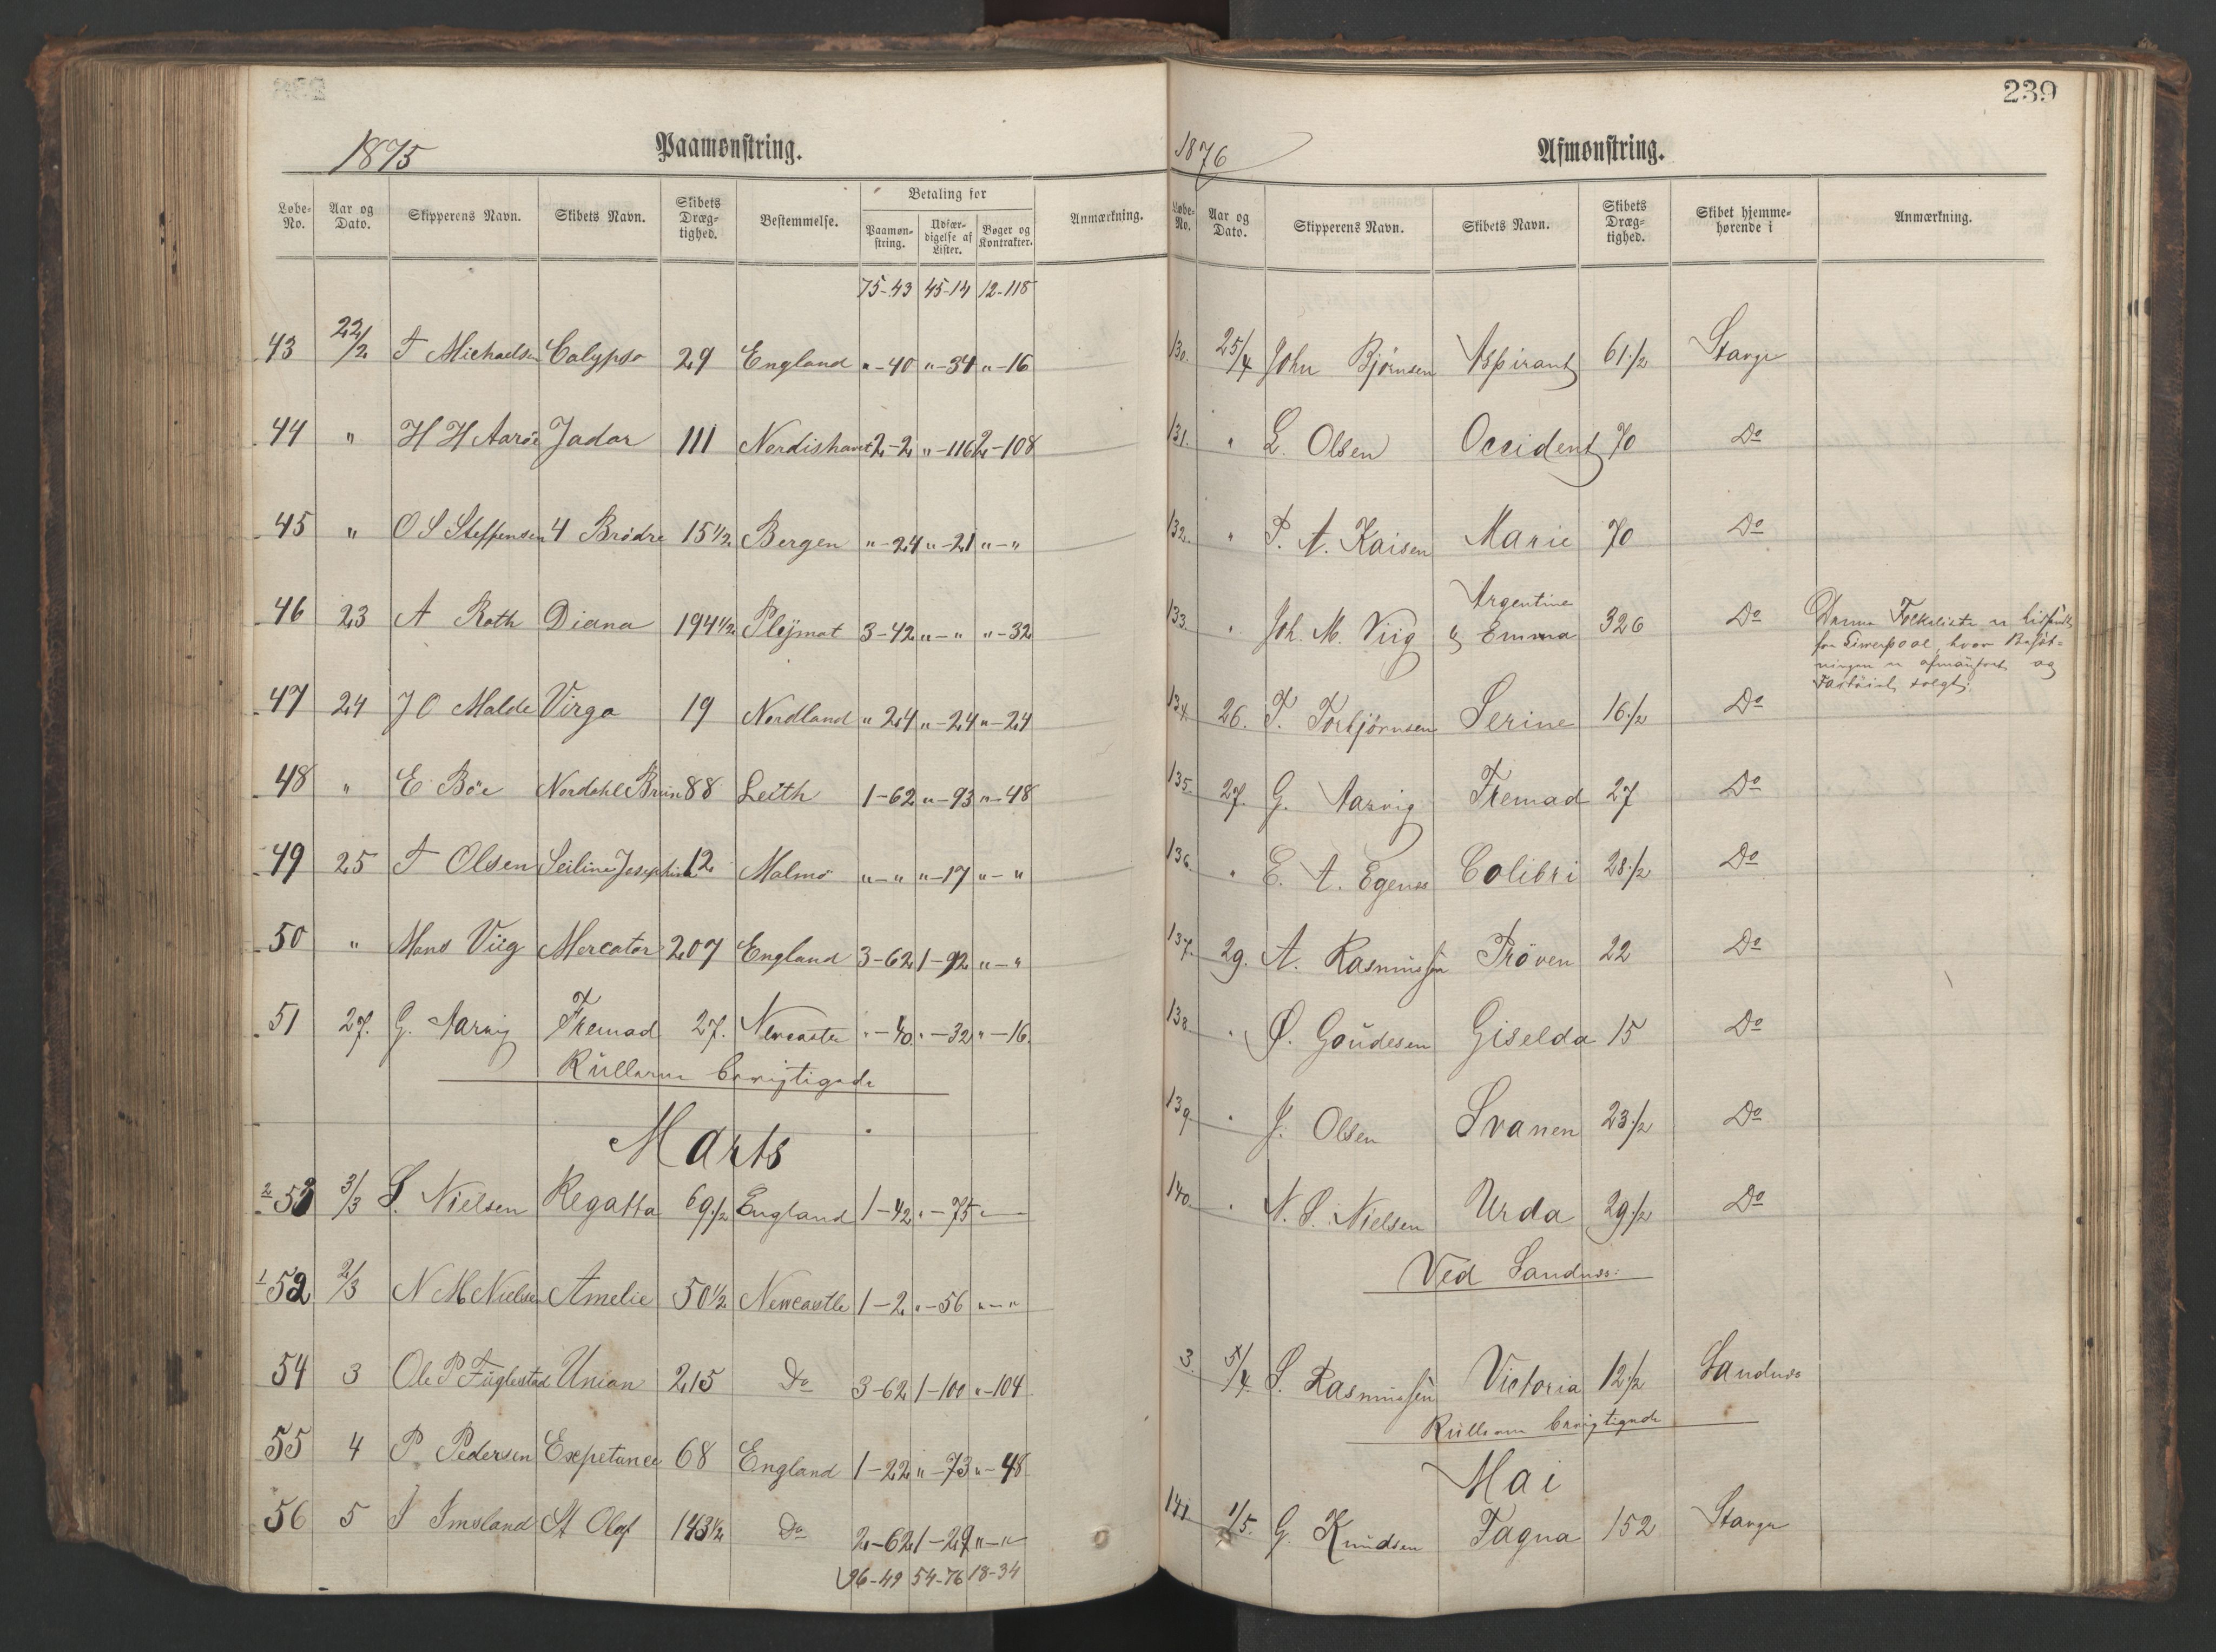 1875 Paamønstring.
Løbe-No. Aar og Dato. Skipperens Navn. Skibets Navn. Skibets Dræg-tighed. Bestemmelse. Betaling for Anmærkning.
Paamøn-string. Udfær-digelse af Lister. Bøger og Kontrakter.
75-43 45-14 12-118
43 22/2 T Michaelsen Calypso 29 England "-40 "-34 "-16
44 " H H Aarøe Jadar 111 Nordishavet 2-2 "-116 2-108
45 " O S Steffensen 4 Brödre 15 1/2 Bergen "-24 "-21 "-"
46 23 A Roth Diana 194 1/2 Pleÿmot 3-42 "-" "-32
47 24 J O Malde Virgo 19 Nordland " 24 "-24 "-24
48 " E Böe Nordahl Brun 88 Leith 1-62 "-93 "-48
49 25 T Olsen Seiline Josephine 12 Malmö "-" "-17 "-"
50 " Mons Viig Mercator 207 England 3-62 1-92 "-"
51 27. G. Aarvig Fremad 27. Newcastle "-40. "-32 "-16.
Rüllerne berigtigede
Marts
2 53 3/3 S. Nielsen Regatta 69 1/2 England 1-42 "-75 "-
1 52 2/3 N M Nielsen Amelie 50 1/2 Newcastle 1-2 "-56 "-"
54 3 Ole P Füglestad Union 215 Do 3-62 1-100 "-104
55 4 P Pedersen Expetance 68 England 1-22 "-73 "-48
56 5 J Imsland St Olaf 143 1/2 Do 2-62 1-29 "-"
96-49 54-76 18-34
239
1876 Afmønstring.
Løbe-No. Aar og Dato. Skipperens Navn. Skibets Navn. Skibets Dræg-tighed. Skibet hjemme-hørende i Anmærkning.
130. 25/4 John Bjørnsen Aspirant 61 1/2 Stavgr
131. " L. Olsen Occident 70 Do
132. " P. A. Kaisen Marie 70 Do
133. " Joh. M. Viig Argentine & Emma 326 Do Denne Folkeliste er
fra Liverpool, hvor Besæt-
ningen er afmønstret og
Fartøiet solgt.
134. 26. T. Torbjørnsen Serine 16 1/2 Do
135. 27. G. Aarvig Fremad 27 Do
136. " E. A. Egenes Colibri 28 1/2 Do
137. 29. A. Rasmussen Pröven 22 Do
138. " Ø. Goüdesen Giselda 15 Do
139. " J. Olsen Svanen 23 1/2 Do
140. " N. S. Nielsen Urda 29 1/2 Do
Ved Sandnes:
3. 5/4. S. Rasmussen Victoria 12 1/2 Sandnes
Rüllerne berigtigede
Mai
141 1/5. G. Knüdsen Fagna 152 Stavgr